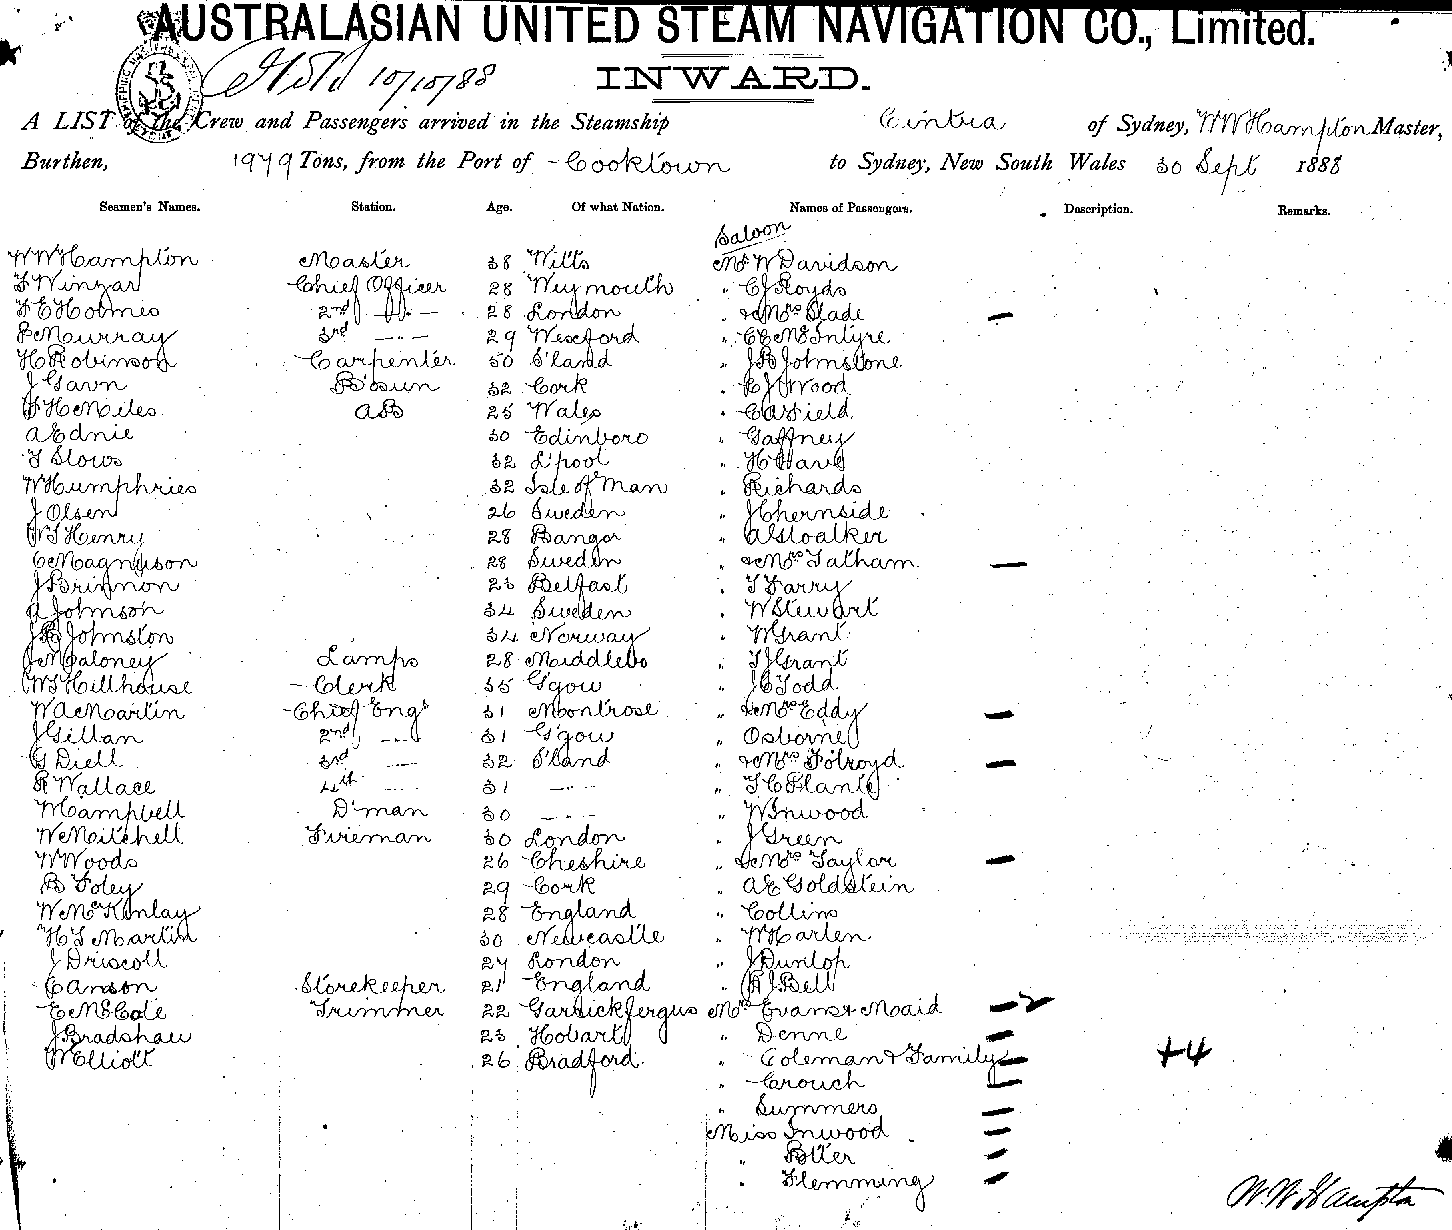 AUSTRALASIAN UNITED STEAM NAVIGATION CO., Limited.
10/10/88
INWARD.
A LIST of the Crew and Passengers arrived in the Steamship Cintra of Sydney, WW Hampton Master,
Burthen, 1979 Tons, from the Port of Cooktown to Sydney, New South Wales 30 Sept 1888
Seamen's Names. Station. Age. Of what Nation. Names of Passengers. Description. Remarks.
Saloon
WW Hampton Master 38 Wilts Mr W Davidson
F Winzar Chief Officer 28 Weymouth " CJ Royds
F E Holmes 2nd " 28 London " & Mrs Slade —
P Murray 3rd " 29 Wexford " CC McIntyre
H Robinson Carpenter 50 S'land " JB Johnstone
J Gavn B'sun 32 Cork " CJ Wood
F H C Miles AB 25 Wales " CA Field
A Ednie 30 Edinboro " Gaffney
T Slows 32 L'pool " H
W Humphries 32 Isle of Man " Richards
J Olsen 26 Sweden " J Chernside
WS Henry 28 Bangor "
C Magnuson 28 Sweden " & Mrs Tatham —
J Brinnon 23 Belfast " T Farry
A Johnson 34 Sweden " W Stewart
JB Johnston 34 Norway " W Grant
J Maloney Lamps 28 Middlebo " TJ Grant
WS Hillhouse Clerk 35 G'gow " JC Todd
WA Martin Chief Engr 31 Montrose " & Mrs Eddy —
J Gillan 2nd " 31 G'gow " Osborne
G Diell 3rd " 32 S'land " & Mrs Folroyd —
R Wallace 4th " 31 " " TC Plante
W Campbell D'man 30 " " W Inwood
W Mitchell Fireman 30 London " J Green
W Woods 26 Cheshire " & Mrs Taylor —
B Foley 29 Cork " AE Goldstein
W McKinlay 28 England " Collins
HS Martin 30 Newcastle " W Harten
J Driscoll 27 London " J Dunlop
C Anson Storekeeper 21 England " RJ Bell
E McCole Trimmer 22 Garrickfergus Mrs Evans & Maid — 2
J Bradshaw 23 Hobart " Denne —
W Elliott 26 Bradford " Coleman & Family — +4
" Crouch —
" Summers —
Miss Inwood —
" Potter —
" Flemming —
WW Hampton